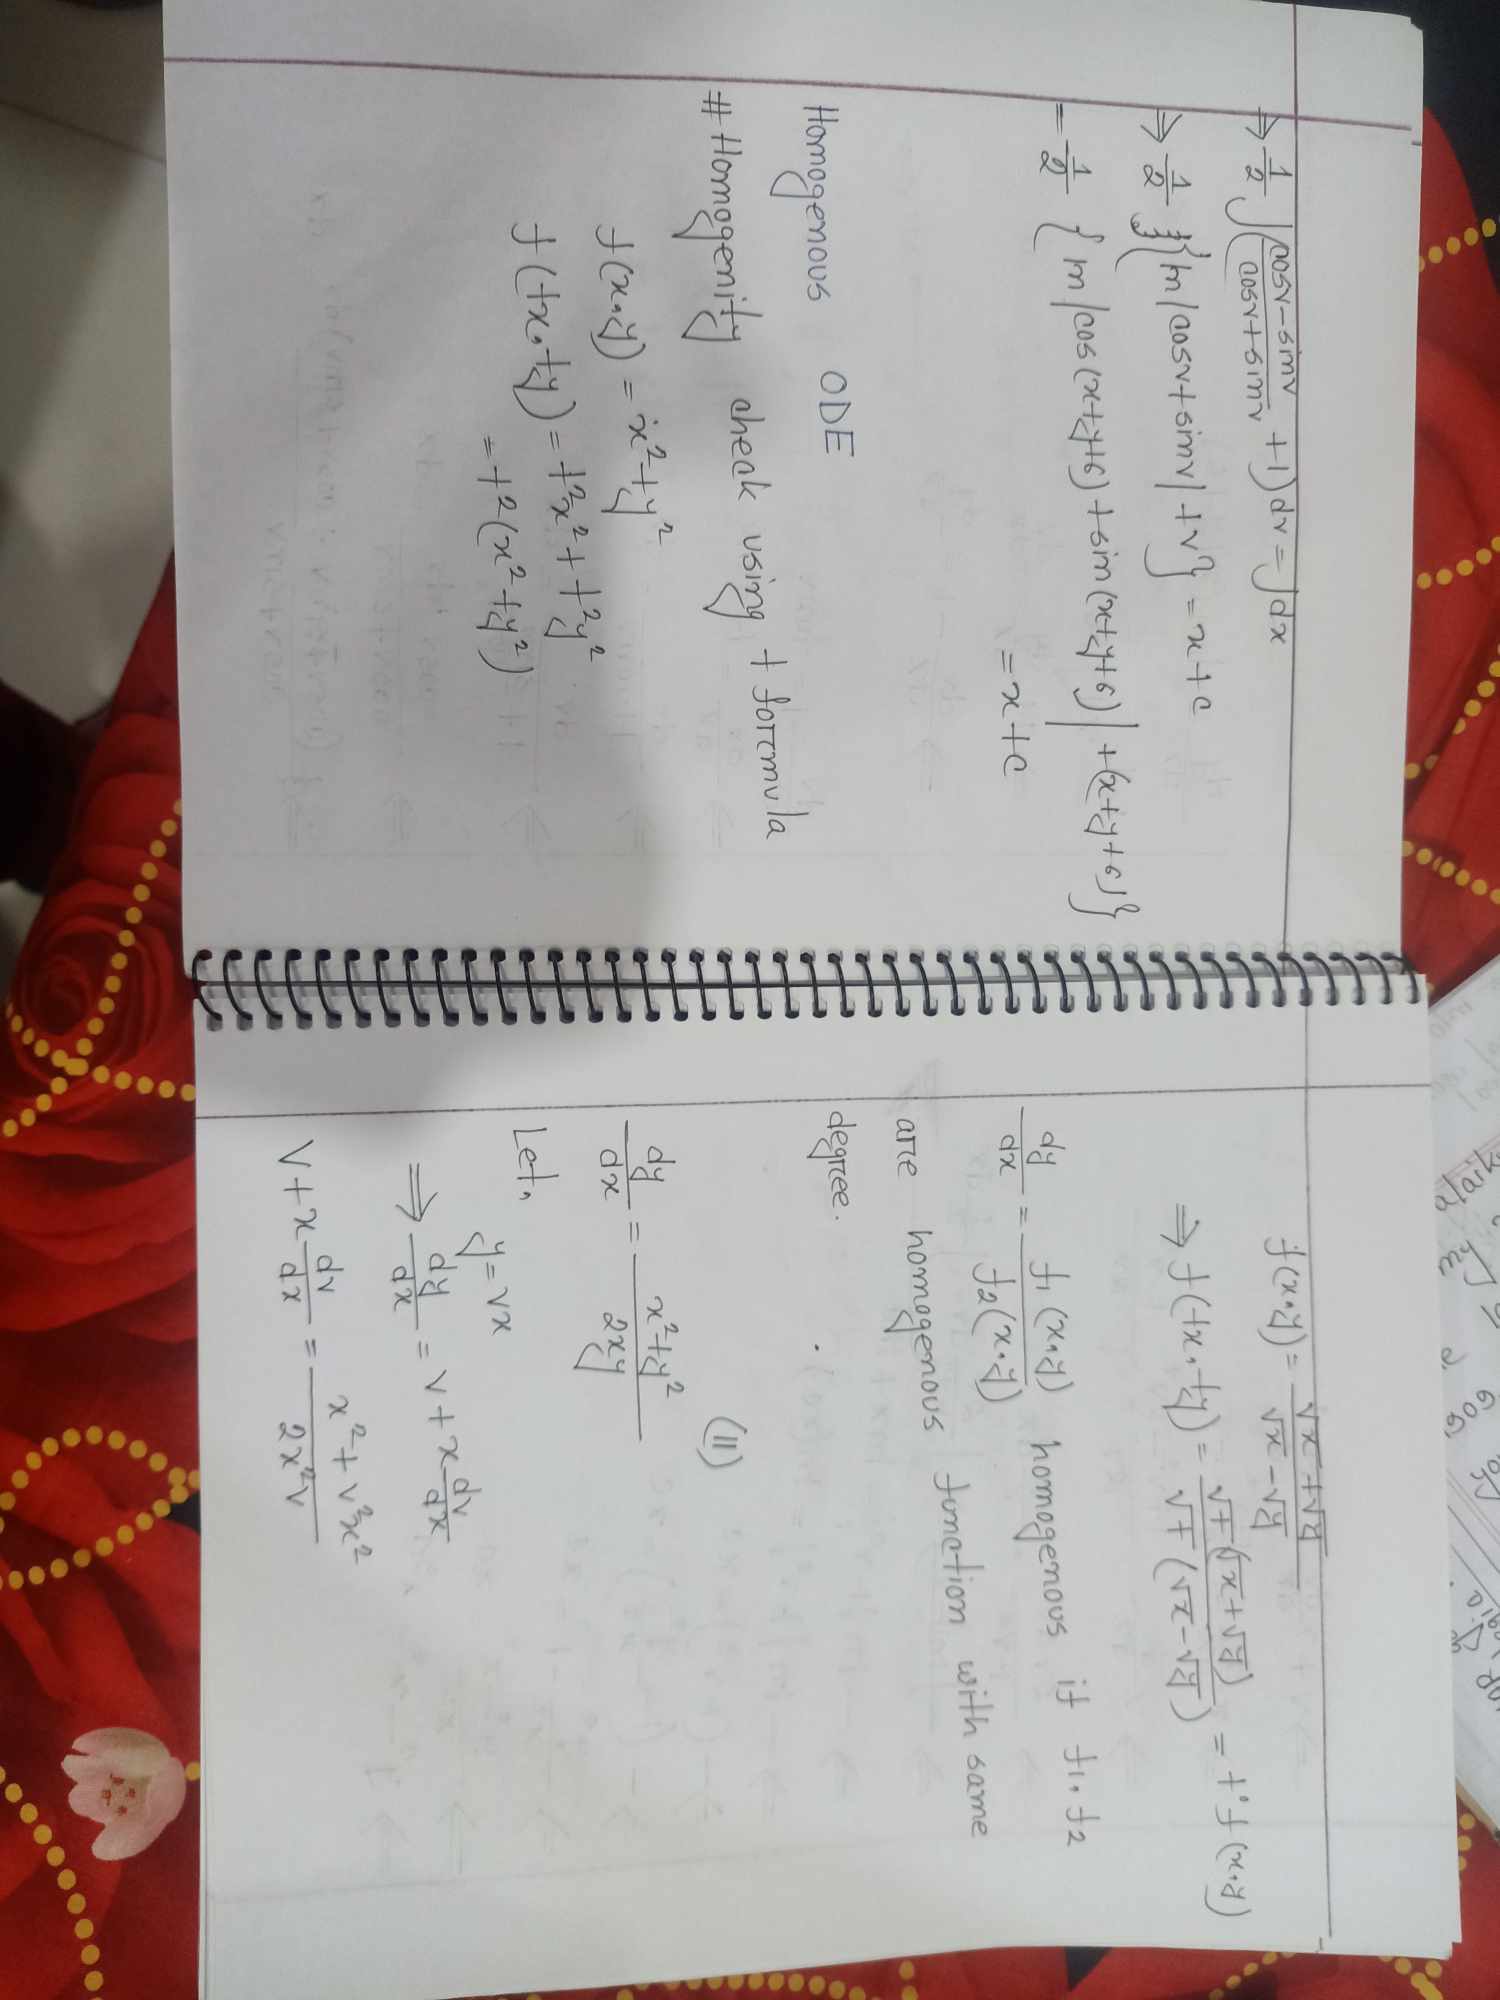 ⇒ 1/2 ∫(cosv-sinv/cosv+sinv +1)dv = ∫dx
⇒ 1/2 {ln|cosv+sinv|+v} = x+c
= 1/2 {ln|cos(x+y+6)+sin(x+y+6)|+(x+y+6)}
= x+c
Homogenous ODE
# Homogenity check using t formula
f(x,y) = x²+y²
f(tx,ty) = t²x²+t²y²
= t²(x²+y²)
f(x,y) = √x+√y/√x-√y
⇒ f(tx,ty) = √t(√x+√y)/√t(√x-√y) = t° f(x,y)
dy/dx = f₁(x,y)/f₂(x,y) homogenous if f₁,f₂
are homogenous function with same
degree.
(11)
dy/dx = x²+y²/2xy
Let,
y=vx
⇒ dy/dx = v+x dv/dx
v+x dv/dx = x²+v²x²/2x²v